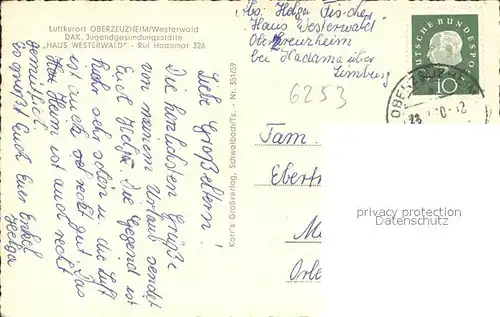 Luftkurort OBERZEUZHEIM/Westerwald
DAK, Jugendgesundungsstätte
„HAUS WESTERWALD" - Ruf Hadamar 326
Abs. Helga Fischer
Haus Westerwald
Oberzeuzheim
bei Hadama über
Limburg
6253
DEUTSCHE BUNDESPOST
10
Liebe Großeltern!
Die herzlichsten Grüße
von meinem Urlaub sendet
Euch Helga. Die Gegend ist
sehr schön und die Luft
ist auch sehr gut. Das
Heim ist auch recht
gemütlich.
Es grüßt Euch Eure Enkel
Helga
Korr's Großverlag, Schwalbach/Ts. - Nr. 351/59
Fam.
privacy protection
Datenschutz